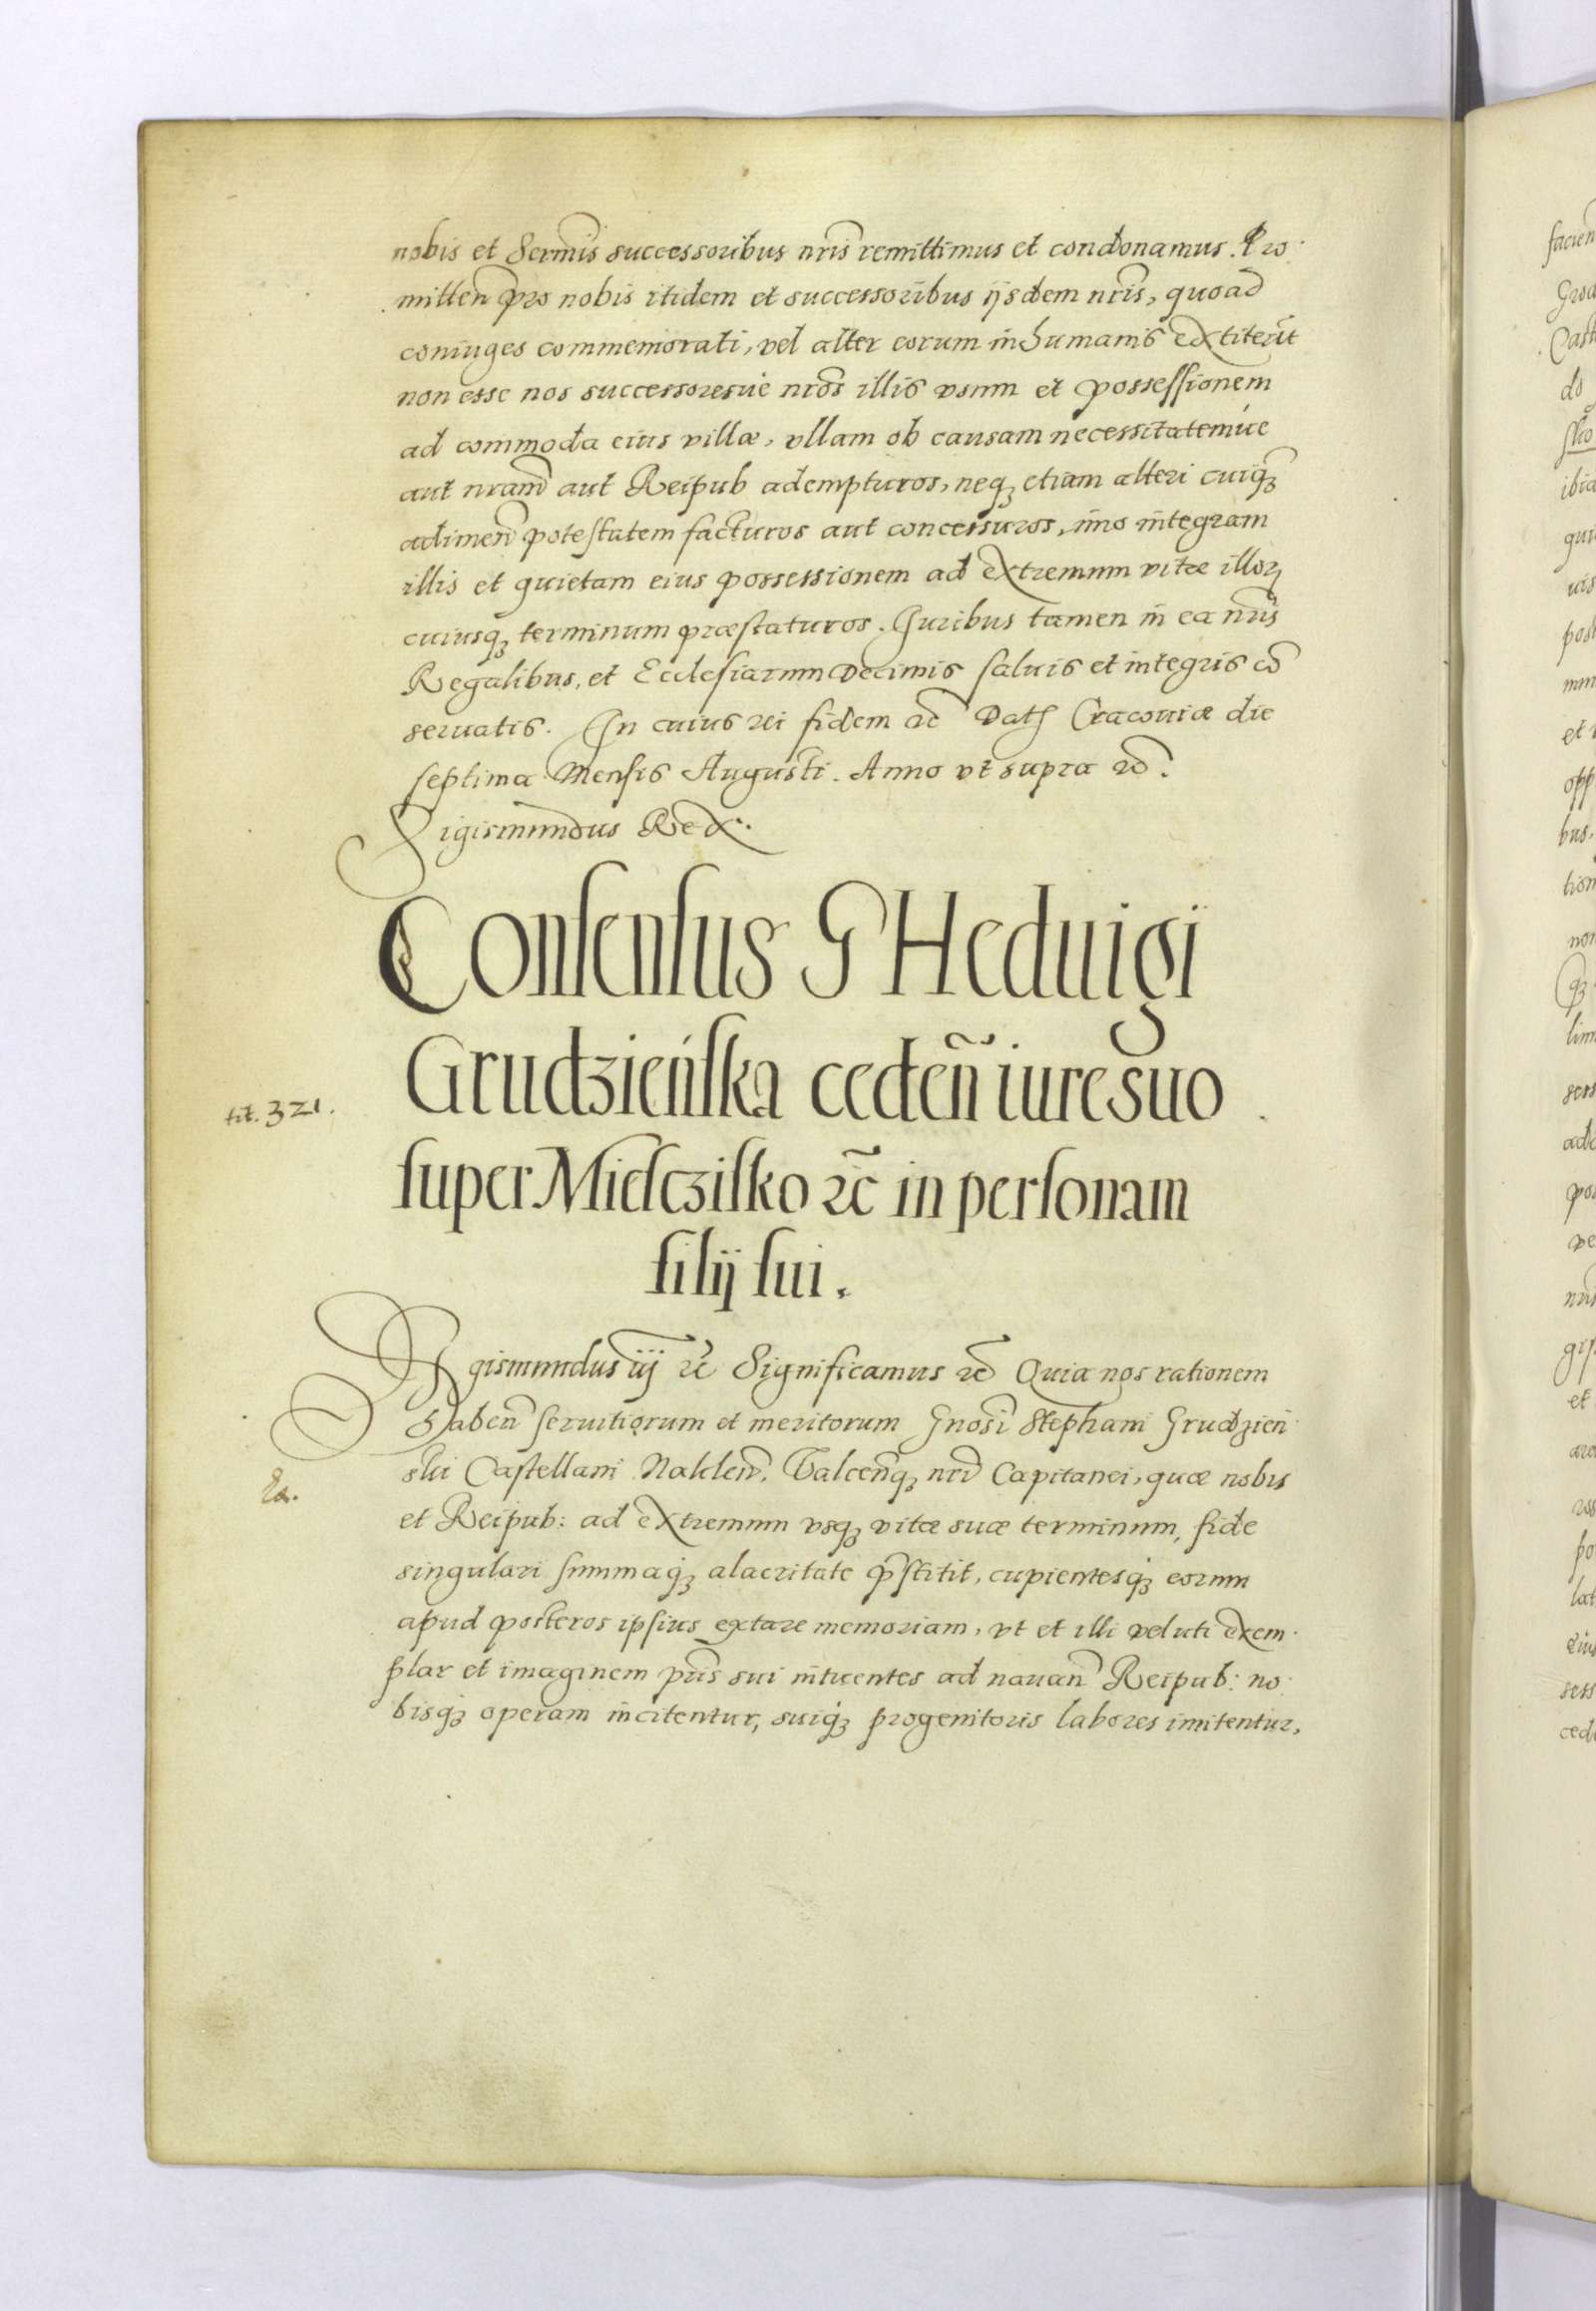 nobis et Sermis successoribus nris remittimus et condonamus. Pro
mitten pro nobis itidem et successoribus ijsdem nris, quoad
coniuges commemorati, vel alter eorum in humanis extiterit
non esse nos successoresue nros illis vsum et possessionem
ad commoda eius villæ, vllam ob causam necessitatemúe
aut nram aut Reipub adempturos, neqꝫ etiam alteri cuiqꝫ
adimen potestatem facturos aut concessuros, imo integram
illis et quietam eius possessionem ad extremum vitæ illoꝝ
cuiusqꝫ terminum præstaturos. Iuribus tamen in ea nris
Regalibus, et Ecclesiarum Decimis saluis et integris cō
seruatis. In cuius rei fidem ꝛc Datꝭ Cracouiæ die
septima Mensis Augusti. Anno vt supra ꝛc.
Sigismundus Rex.
Consensus G Heduigi
Grudzieńska cedeñ iure suo
super Mielczisko ꝛc in personam
filij sui.
tit. 321.
Sigismundus iij ꝛc Significamus ꝛc Quia nos rationem
Haben seruitiorum et meritorum Gnosi Stephani Grudzien
ski Castellani Naklen. Valcenqꝫ nri Capitanei, quæ nobis
et Reipub: ad extremum vsqꝫ vitæ suæ terminum, fide
singulari summaqꝫ alacritate p̄stitit, cupientesqꝫ eorum
apud posteros ipsius extare memoriam, vt et illi veluti exem
plar et imaginem pris sui intuentes ad nauan Reipub: no
bisqꝫ operam incitentur, suiqꝫ progenitoris labores imitentur,